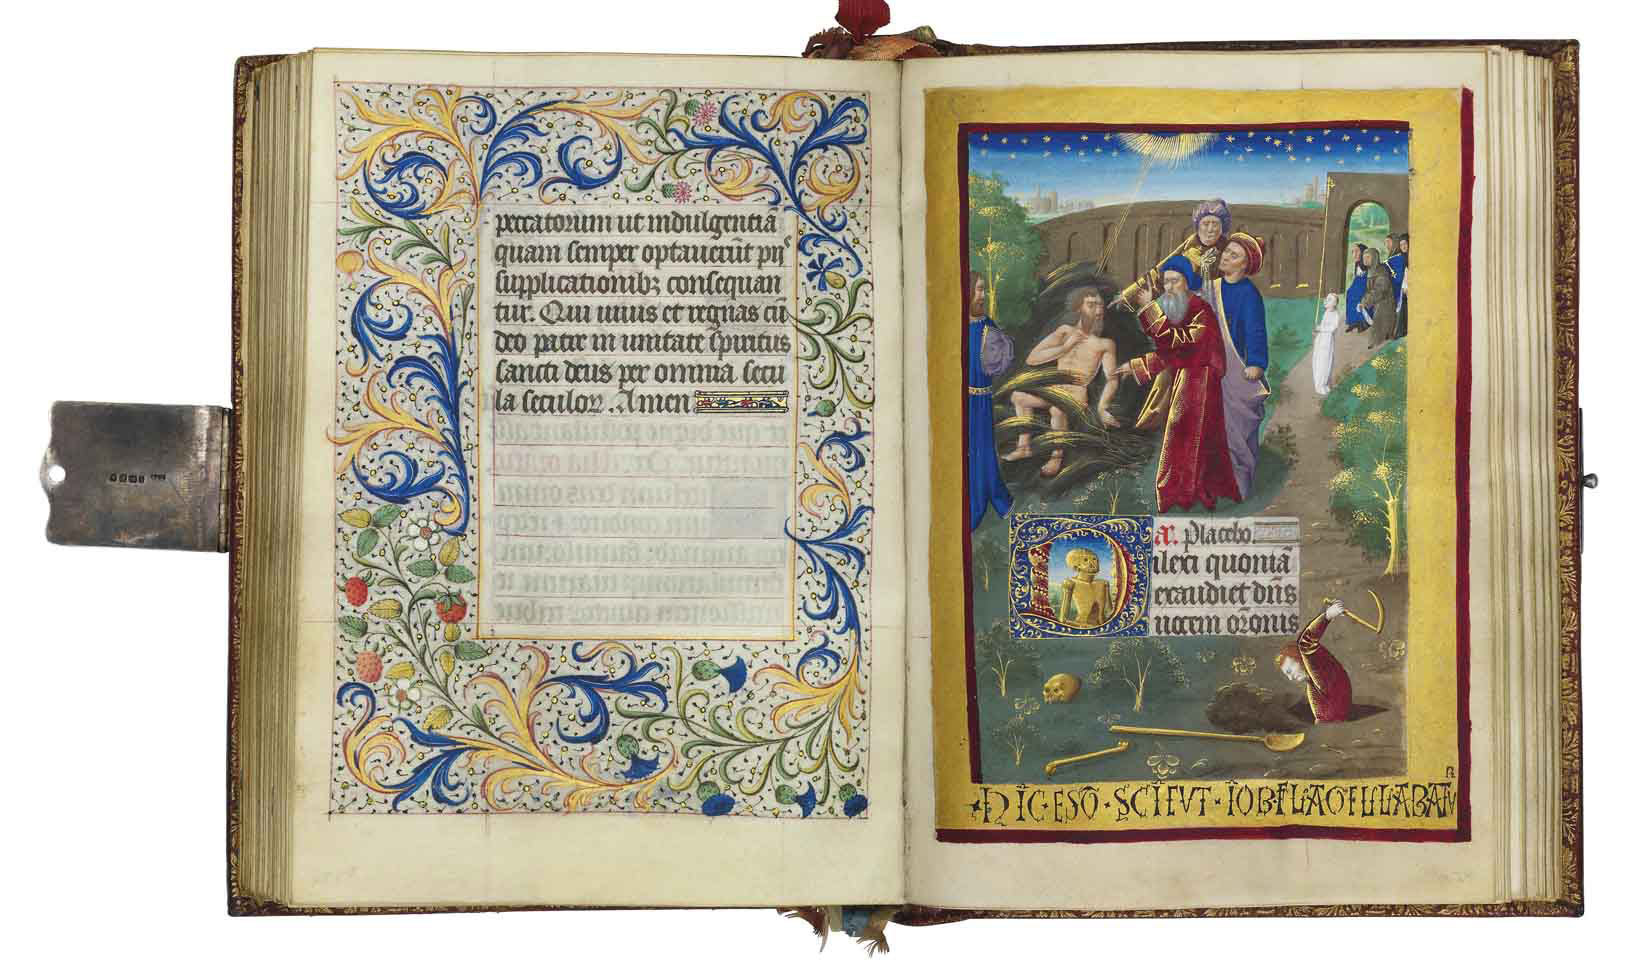 peccatorum ut indulgentiā
quam semper optauerūt piis
supplicationibꝫ consequan
tur. Qui uiuis et regnas cū
deo patre in unitate spiritus
sancti deus per omnia secu
la seculoꝝ. Amen
aᷓ. Placebo.
Dilexi quoniā
exaudiet dn̄s
uocem or̄onis